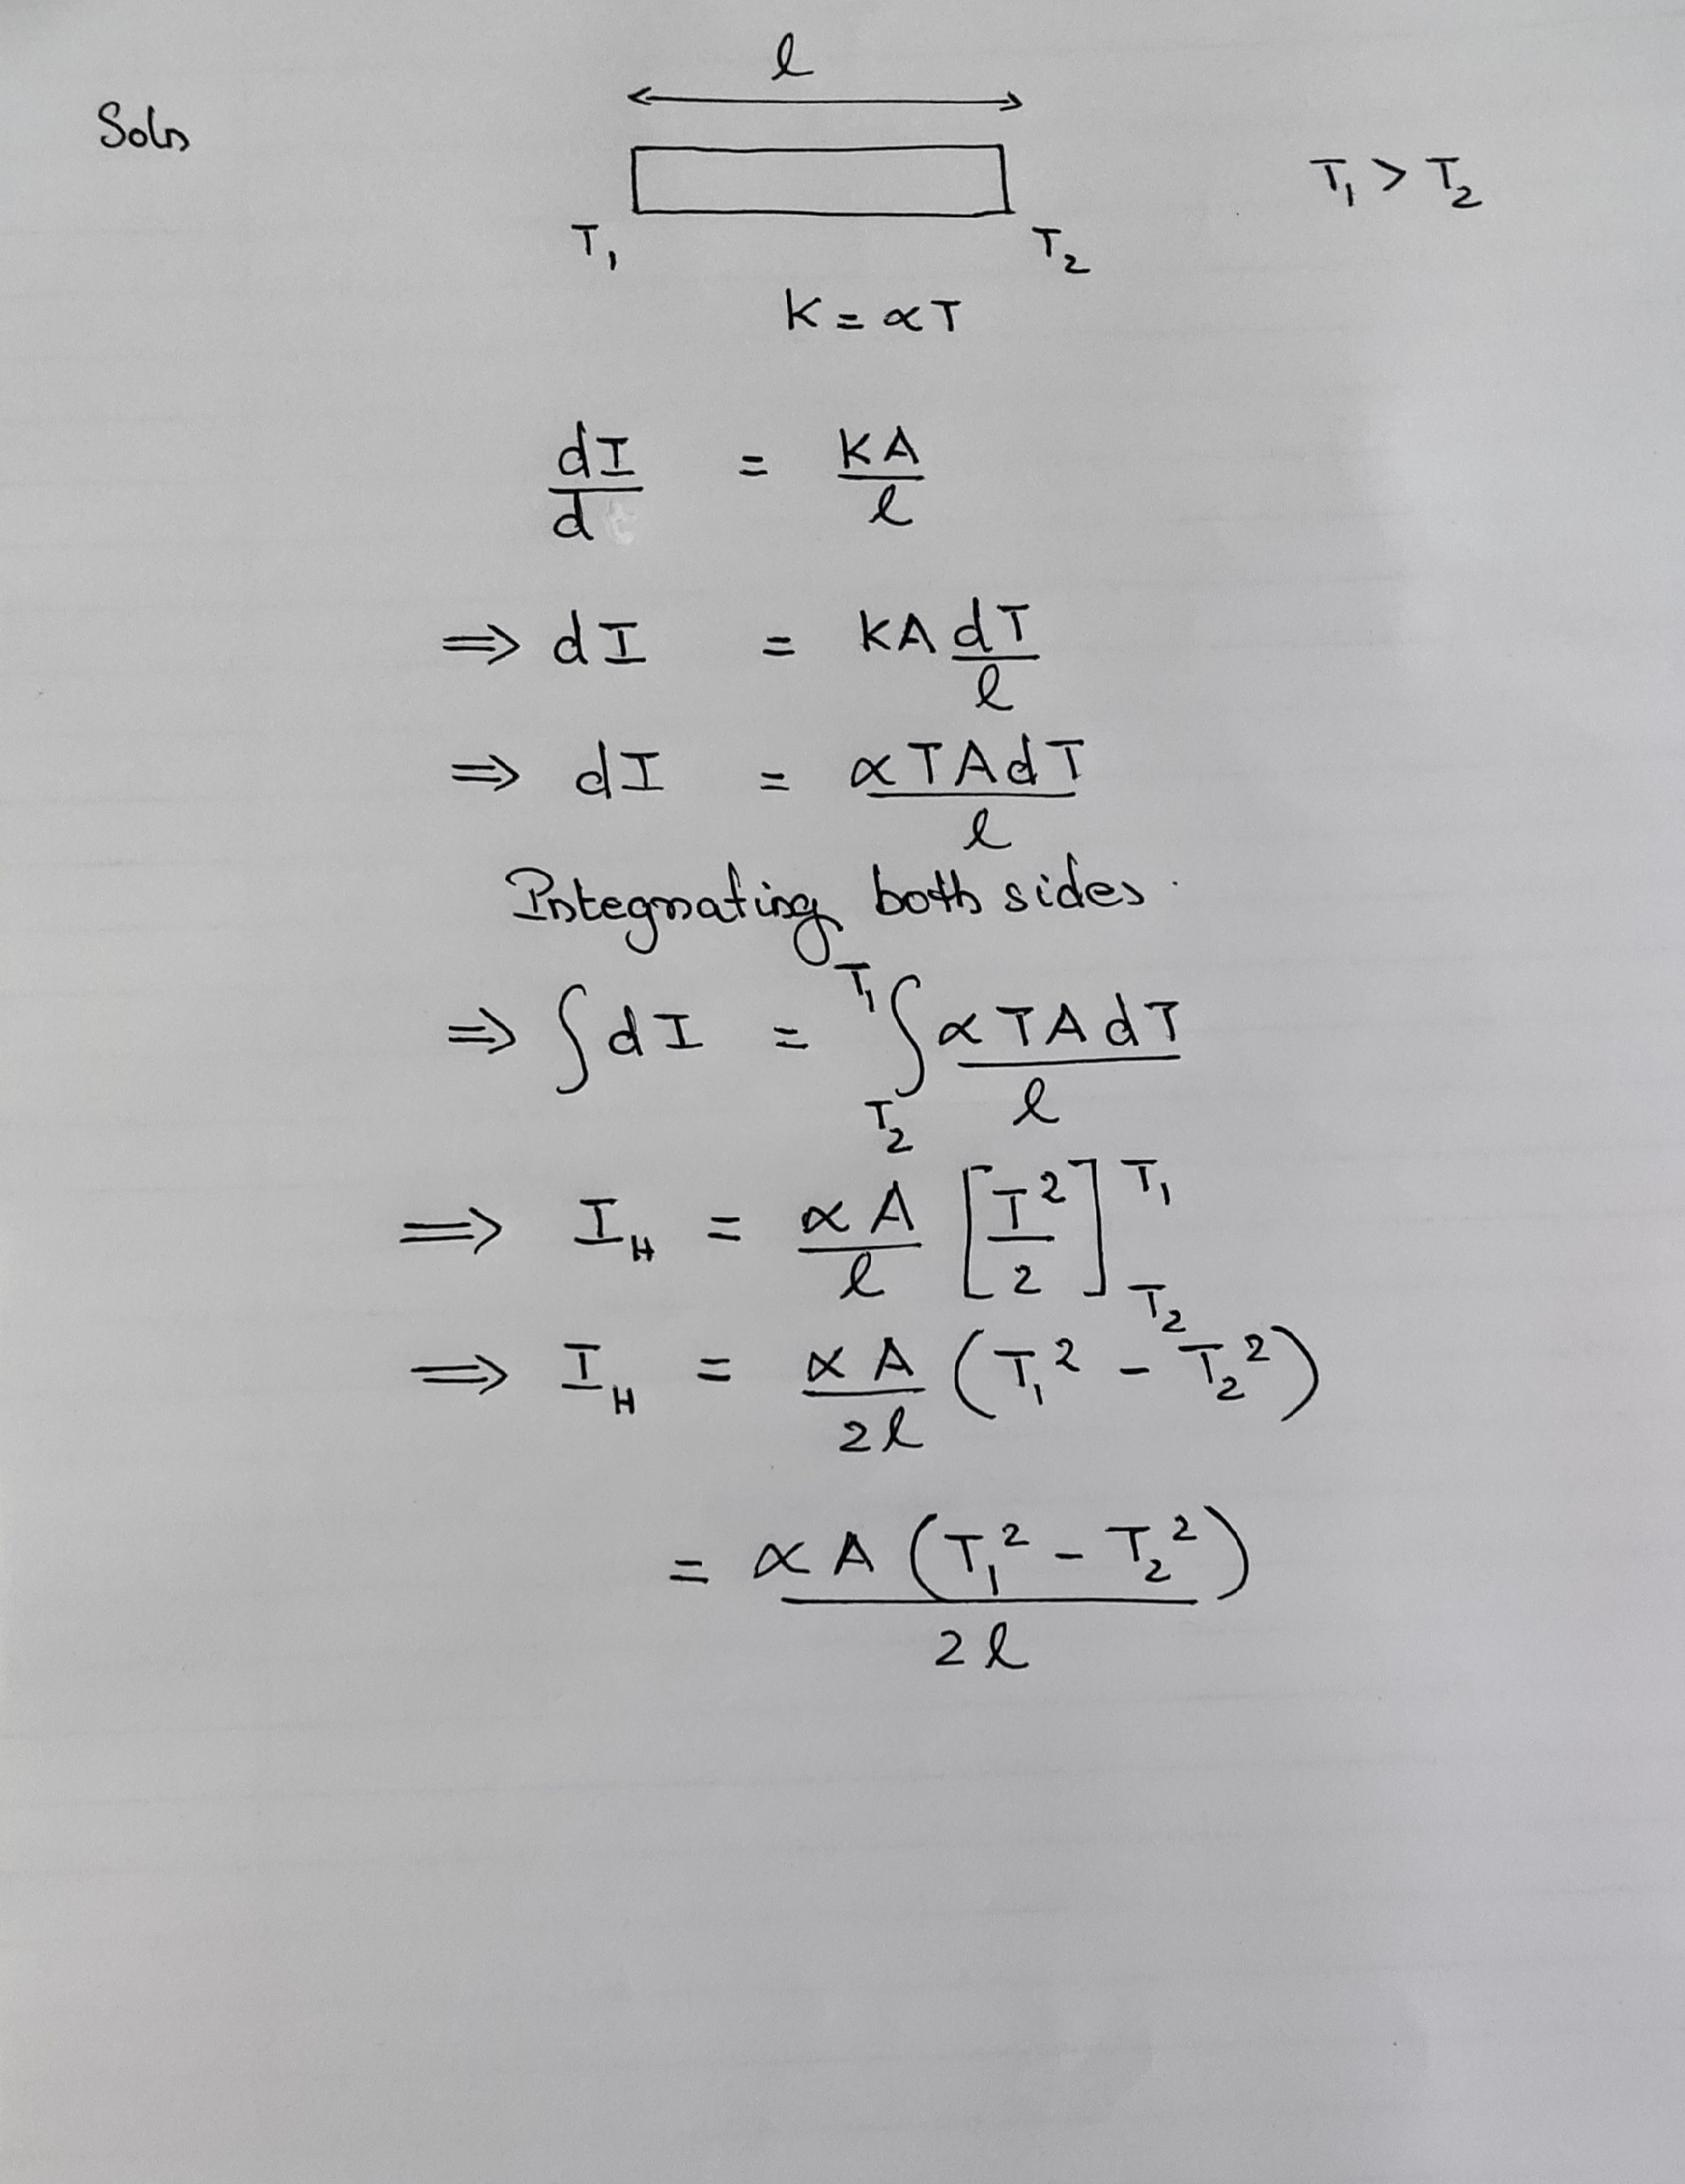 l
Soln
T₁ > T₂
T₁ T₂
K = αT
dI/d = KA/l
⇒ dI = KA dT/l
⇒ dI = αTAdT/l
Integrating both sides.
⇒ ∫dI = ∫_{T₂}^{T₁} αTAdT/l
⇒ I_H = αA/l [T²/2]_{T₂}^{T₁}
⇒ I_H = αA/2l (T₁² - T₂²)
= αA(T₁² - T₂²)/2l